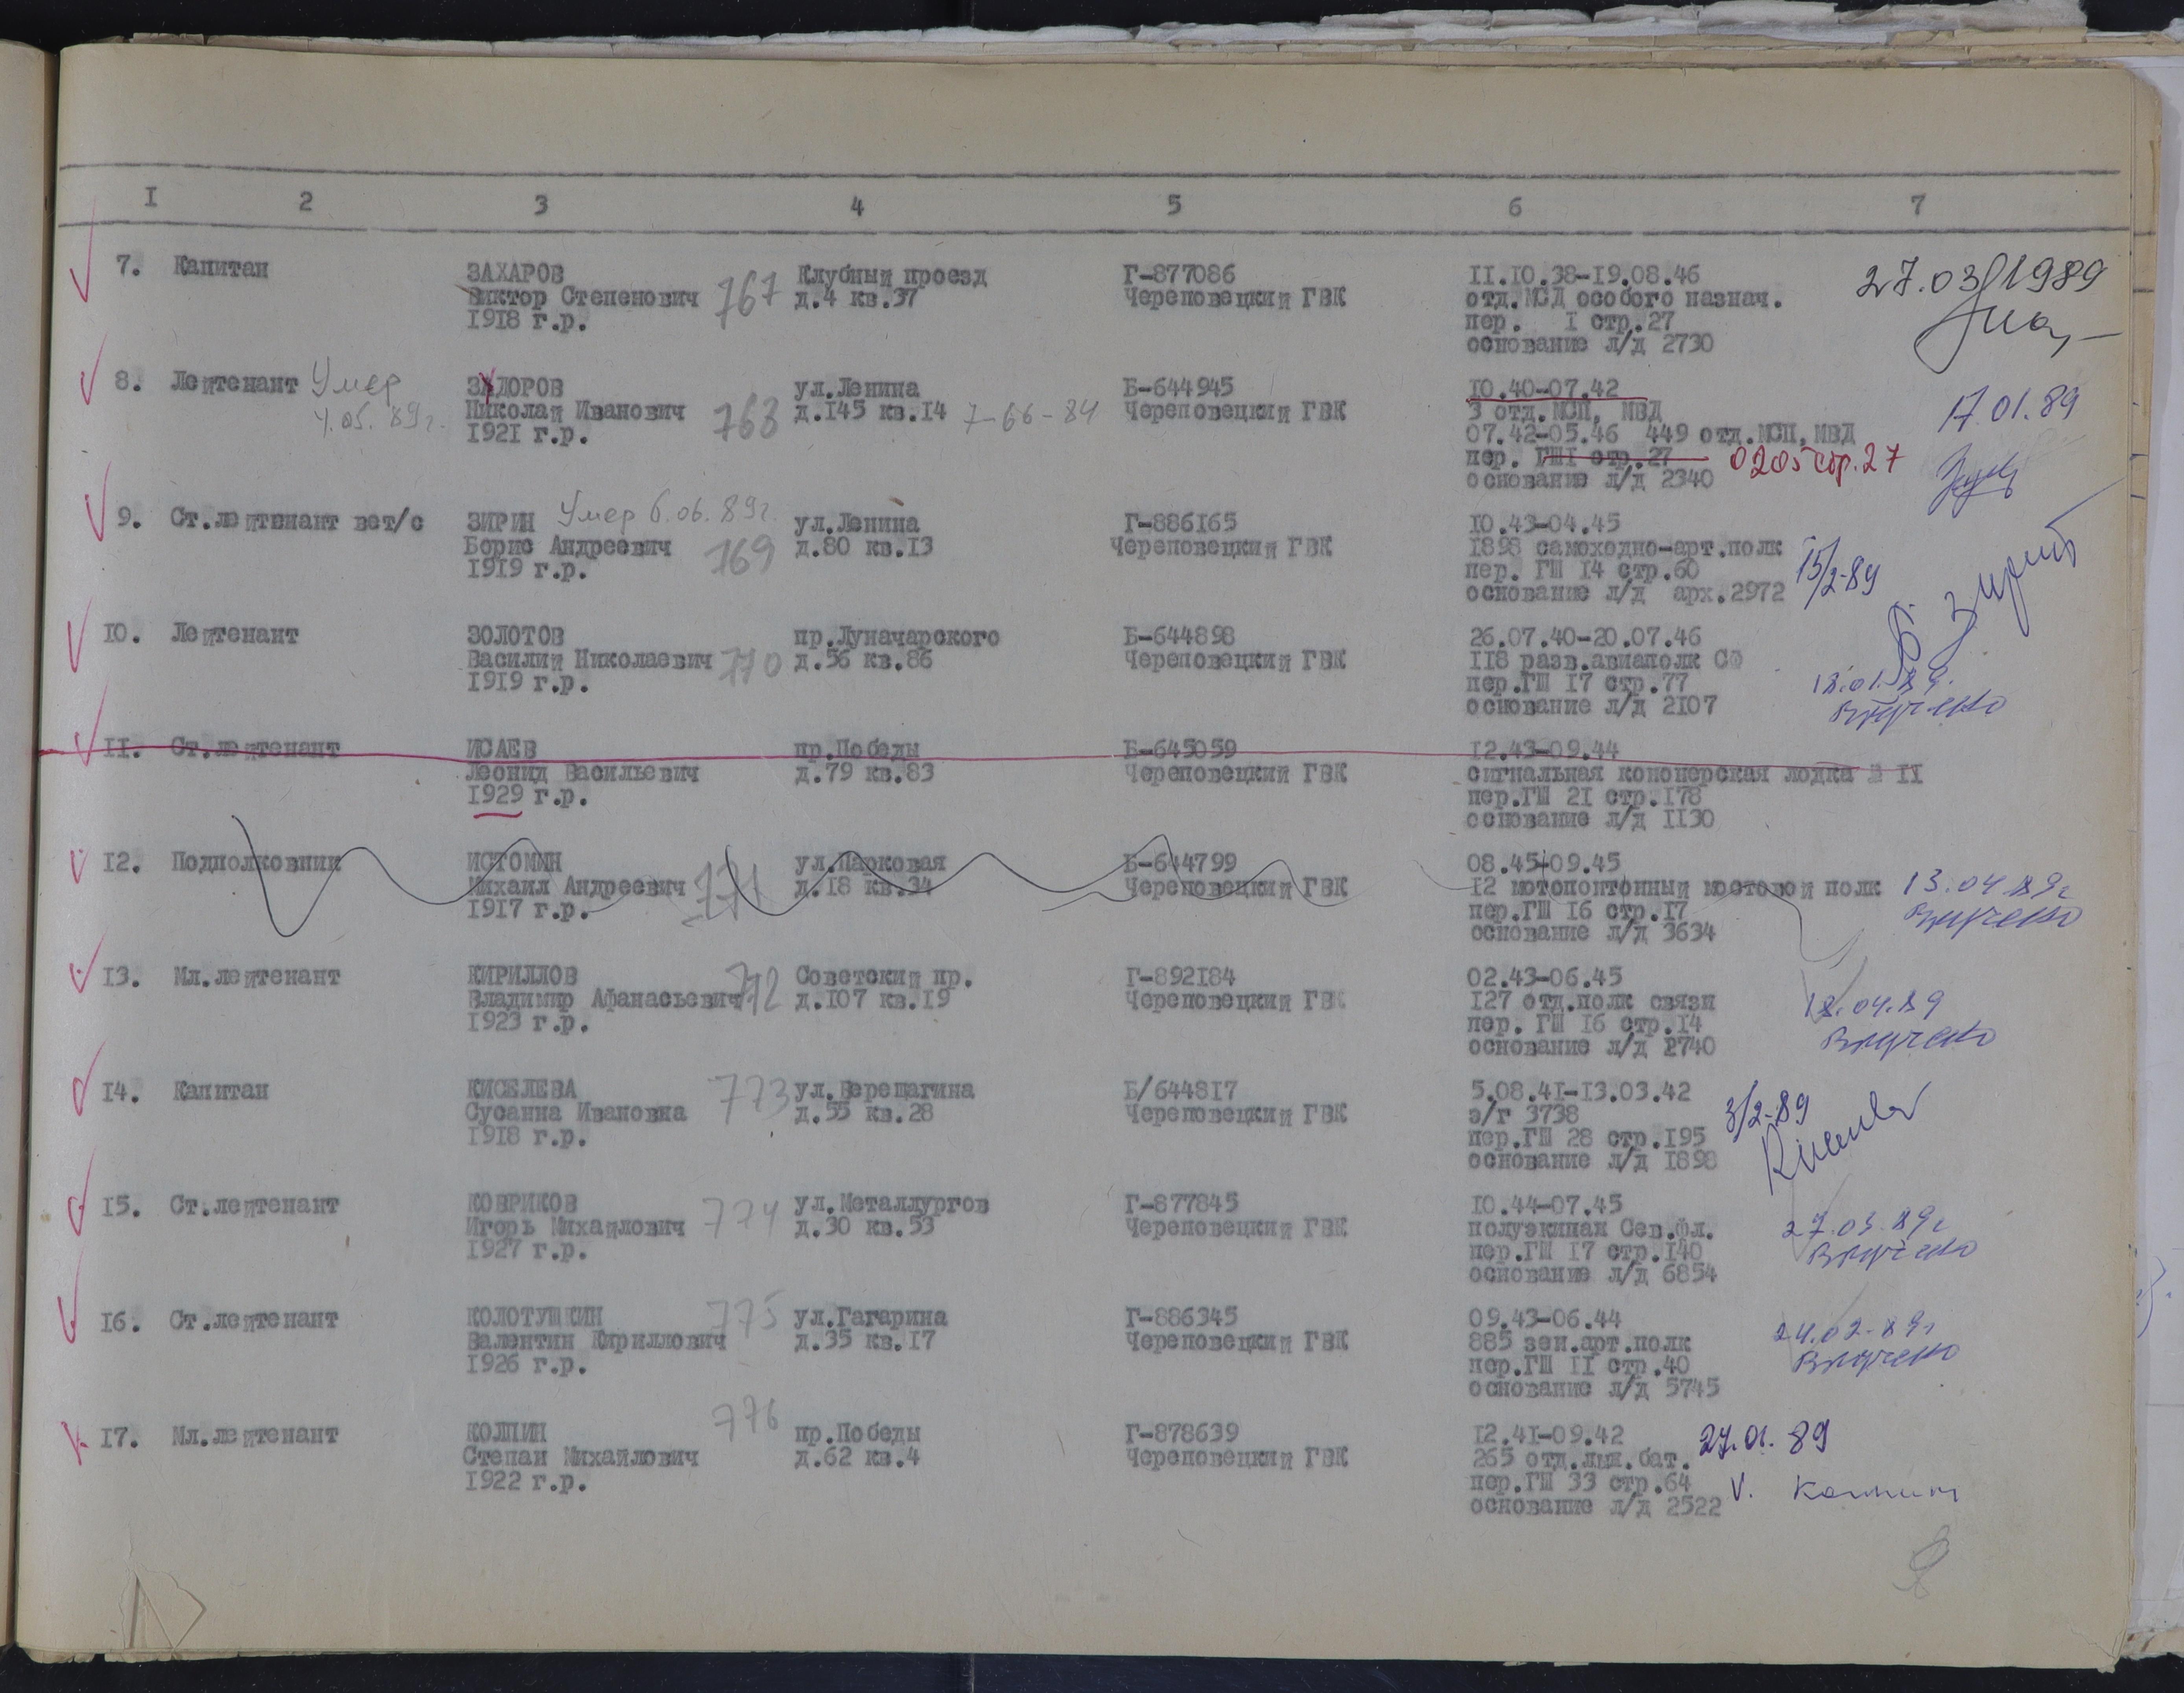 I 2 3 4 5 6 7
7. Капитан ЗАХАРОВ Клубный проезд Г-877086 II.I0.38-I9.08.46 27.03.1989
Виктор Степенович 767 д.4 кв.37 Череповецкий ГВК отд.МСД особого назнач.
I9I8 г.р. пер. I стр.27
основание л/д 2730
8. Лейтенант Умер ЗАДОРОВ ул.Ленина Б-644945 I0.40-07.42 17.01.89
4.05.89г. Николай Иванович 768 д.I45 кв.I4 7-66-84 Череповецкий ГВК 3 отд.МСП, МВД
I92I г.р. 07.42-05.46 449 отд.МСП,МВД
пер. ГШI стр.27 0205 стр.27
основание л/д 2340
9. Ст.лейтенант вет/с ЗИРИН Умер 6.06.89г. ул.Ленина Г-886I65 I0.43-04.45
Борис Андреевич 769 д.80 кв.I3 Череповецкий ГВК I898 самоходно-арт.полк 15/2-89
I9I9 г.р. пер. ГШ I4 стр.60 Б. Зирин
основание л/д арх.2972
I0. Лейтенант ЗОЛОТОВ пр.Луначарского Б-644898 26.07.40-20.07.46
Василий Николаевич 770 д.56 кв.86 Череповецкий ГВК II8 разв.авиаполк СФ
I9I9 г.р. пер.ГШ I7 стр.77 18.01.89г.
основание л/д 2I07 Вручено
II. Ст.лейтенант ИСАЕВ пр.Победы Б-645059 I2.43-09.44
Леонид Васильевич д.79 кв.83 Череповецкий ГВК сигнальная кононерская лодка № II
I929 г.р. пер.ГШ 2I стр.I78
основание л/д II30
I2. Подполковник ИСТОМИН ул.Парковая Б-644799 08.45-09.45
Михаил Андреевич 771 д.I8 кв.34 Череповецкий ГВК I2 мотопонтонный мостовой полк 13.04.89г
I9I7 г.р. пер.ГШ I6 стр.I7 Вручено
основание л/д 3634
I3. Мл.лейтенант КИРИЛЛОВ Советский пр. Г-892I84 02.43-06.45
Владимир Афанасьевич 772 д.I07 кв.I9 Череповецкий ГВК I27 отд.полк связи 18.04.89
I923 г.р. пер. ГШ I6 стр.I4 Вручено
основание л/д 2740
I4. Капитан КИСЕЛЕВА ул.Верещагина Б/6448I7 5.08.4I-I3.03.42
Сусанна Ивановна 773 д.55 кв.28 Череповецкий ГВК э/г 3738 3/2-89
I9I8 г.р. пер.ГШ 28 стр.I95
основание л/д I898
I5. Ст.лейтенант КОВРИКОВ ул.Металлургов Г-877845 I0.44-07.45
Игорь Михайлович 774 д.30 кв.53 Череповецкий ГВК полуэкипаж Сев.Фл. 27.03.89г
I927 г.р. пер.ГШ I7 стр.I40 Вручено
основание л/д 6854
I6. Ст.лейтенант КОЛОТУШКИН 775 ул.Гагарина Г-886345 09.43-06.44
Валентин Кириллович д.35 кв.I7 Череповецкий ГВК 885 зен.арт.полк 24.02.89г
I926 г.р. пер.ГШ II стр.40 Вручено
основание л/д 5745
I7. Мл.лейтенант КОЛПИН 776 пр.Победы Г-878639 I2.4I-09.42 27.01.89
Степан Михайлович д.62 кв.4 Череповецкий ГВК 265 отд.лыж.бат.
I922 г.р. пер.ГШ 33 стр.64 V. Колпин
основание л/д 2522